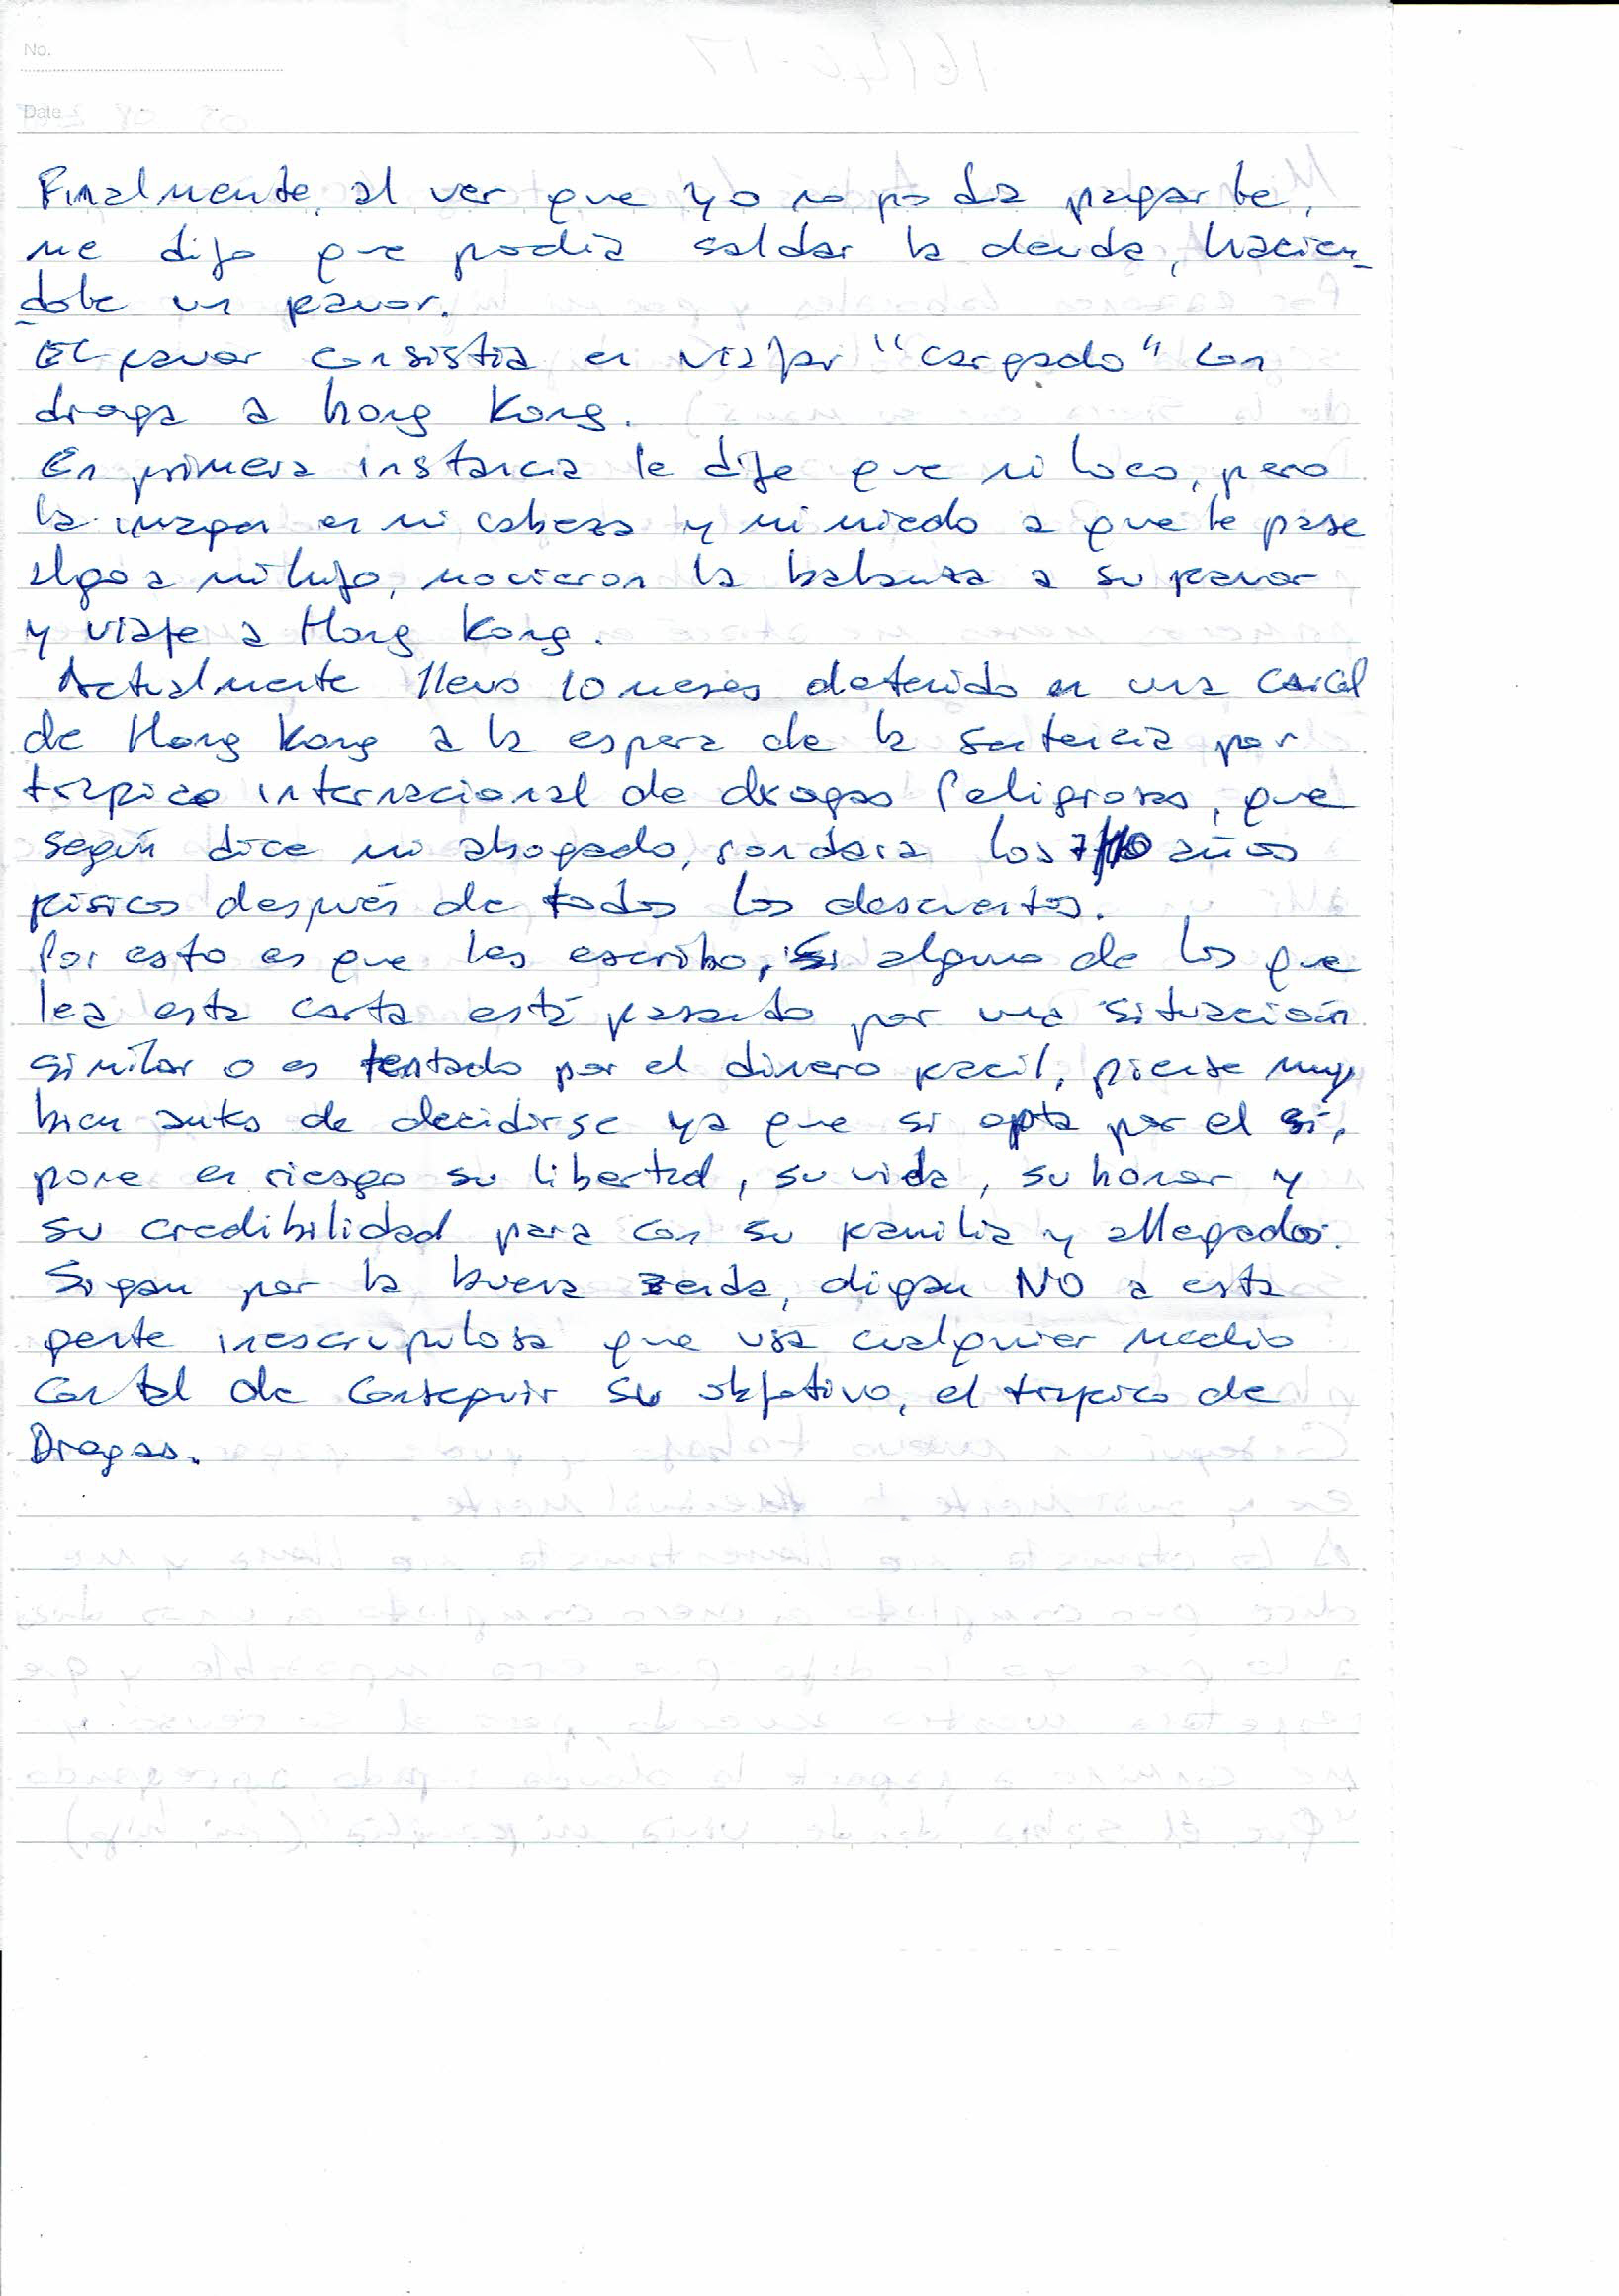 No.
Date
Finalmente, al ver que yo no podia pagarle,
me dijo que podia saldar la deuda, hacien-
dole un favor.
El favor consistia en viajar "cargado" con
droga a hong Kong.
En primera instancia le dije que ni loco, pero
la imagen en mi cabeza y mi miedo a que le pase
algo a mi hijo, hicieron la balanza a su favor
y viaje a Hong Kong.
Actualmente llevo 10 meses detenido en una carcel
de Hong Kong a la espera de la sentencia por
trafico internacional de drogas Peligrosas, que
según dice mi abogado, rondara los años
fisicos después de todos los descuentos.
Por esto es que les escribo, si alguno de los que
lea esta carta está pasando por una situación
similar o es tentado por el dinero facil, piense muy
bien antes de decidirse ya que si opta por el si,
pone en riesgo su libertad, su vida, su honor y
su credibilidad para con su familia y allegados.
Sigan por la buena senda, digan NO a esta
gente inescrupulosa que usa cualquier medio
con tal de conseguir su objetivo, el trafico de
Drogas.